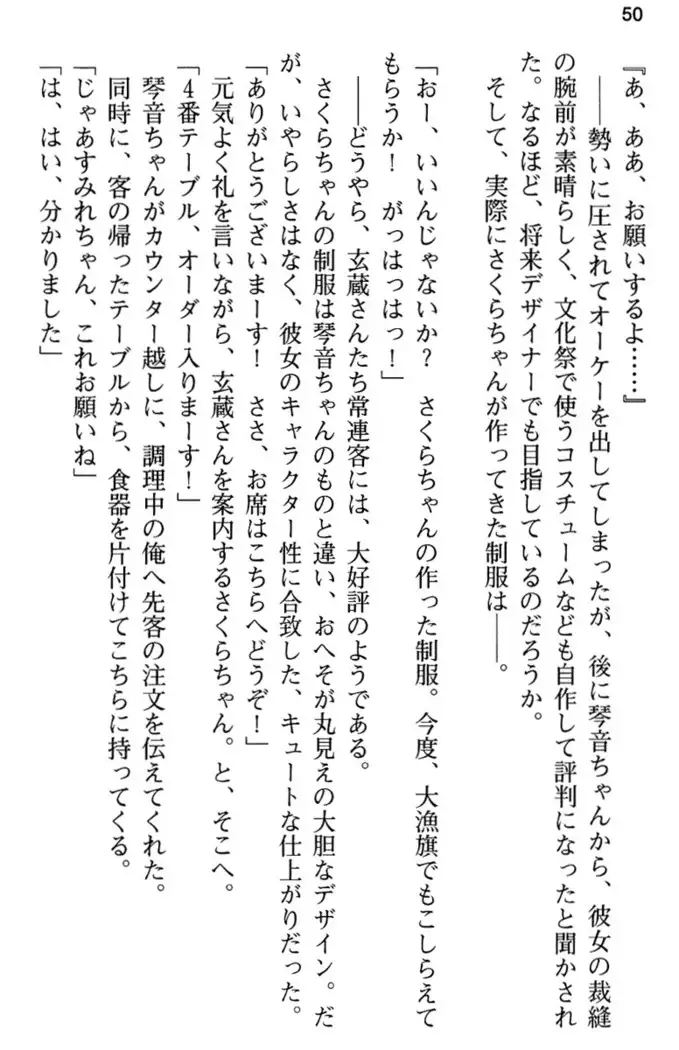 50
『あ、ああ、お願いするよ……』
――勢いに圧されてオーケーを出してしまったが、後に琴音ちゃんから、彼女の裁縫
の腕前が素晴らしく、文化祭で使うコスチュームなども自作して評判になったと聞かされ
た。なるほど、将来デザイナーでも目指しているのだろうか。
そして、実際にさくらちゃんが作ってきた制服は――。
「おー、いいんじゃないか？　さくらちゃんの作った制服。今度、大漁旗でもこしらえて
もらうか！　がっはっはっ！」
――どうやら、玄蔵さんたち常連客には、大好評のようである。
さくらちゃんの制服は琴音ちゃんのものと違い、おへそが丸見えの大胆なデザイン。だ
が、いやらしさはなく、彼女のキャラクター性に合致した、キュートな仕上がりだった。
「ありがとうございまーす！　ささ、お席はこちらへどうぞ！」
元気よく礼を言いながら、玄蔵さんを案内するさくらちゃん。と、そこへ。
「4番テーブル、オーダー入りまーす！」
琴音ちゃんがカウンター越しに、調理中の俺へ先客の注文を伝えてくれた。
同時に、客の帰ったテーブルから、食器を片付けてこちらに持ってくる。
「じゃあすみれちゃん、これお願いね」
「は、はい、分かりました」